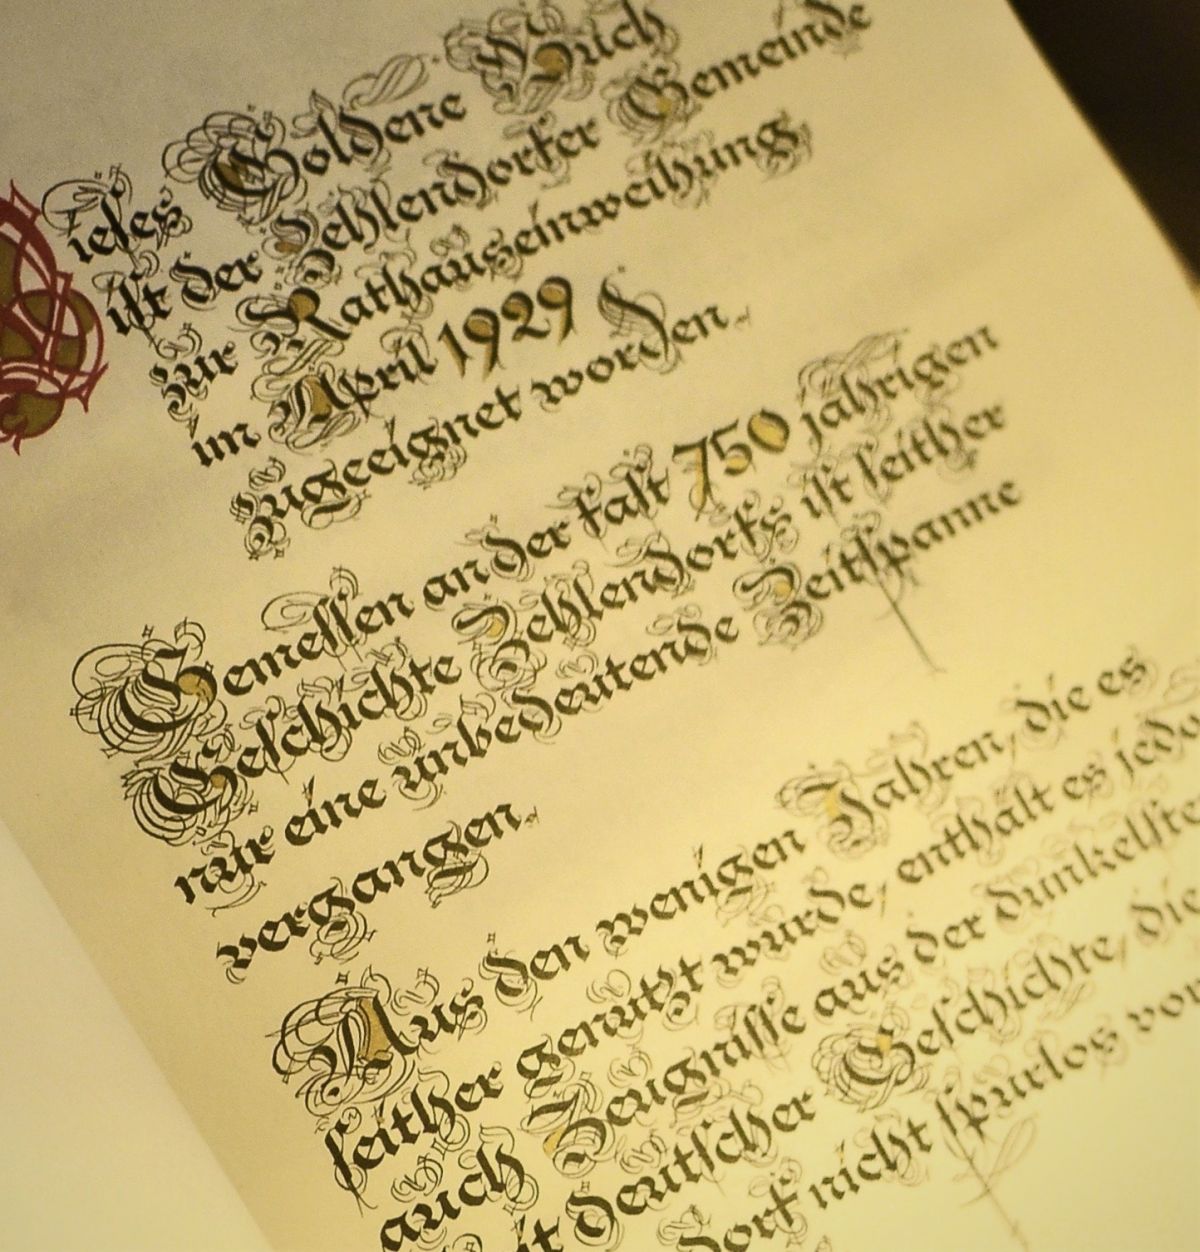 Dieses Goldene Buch
ist der Zehlendorfer Gemeinde
zur Rathauseinweihung
im April 1929
zugeeignet worden.
Gemessen an der fast 750 jährigen
Geschichte Zehlendorfs ist seither
nur eine unbedeutende Zeitspanne
vergangen.
Aus den wenigen Jahren, die es
seither genutzt wurde, enthält es jedo
auch Zeugnisse aus der dunkelste
it deutscher Geschichte, die
dorf nicht spurlos vor